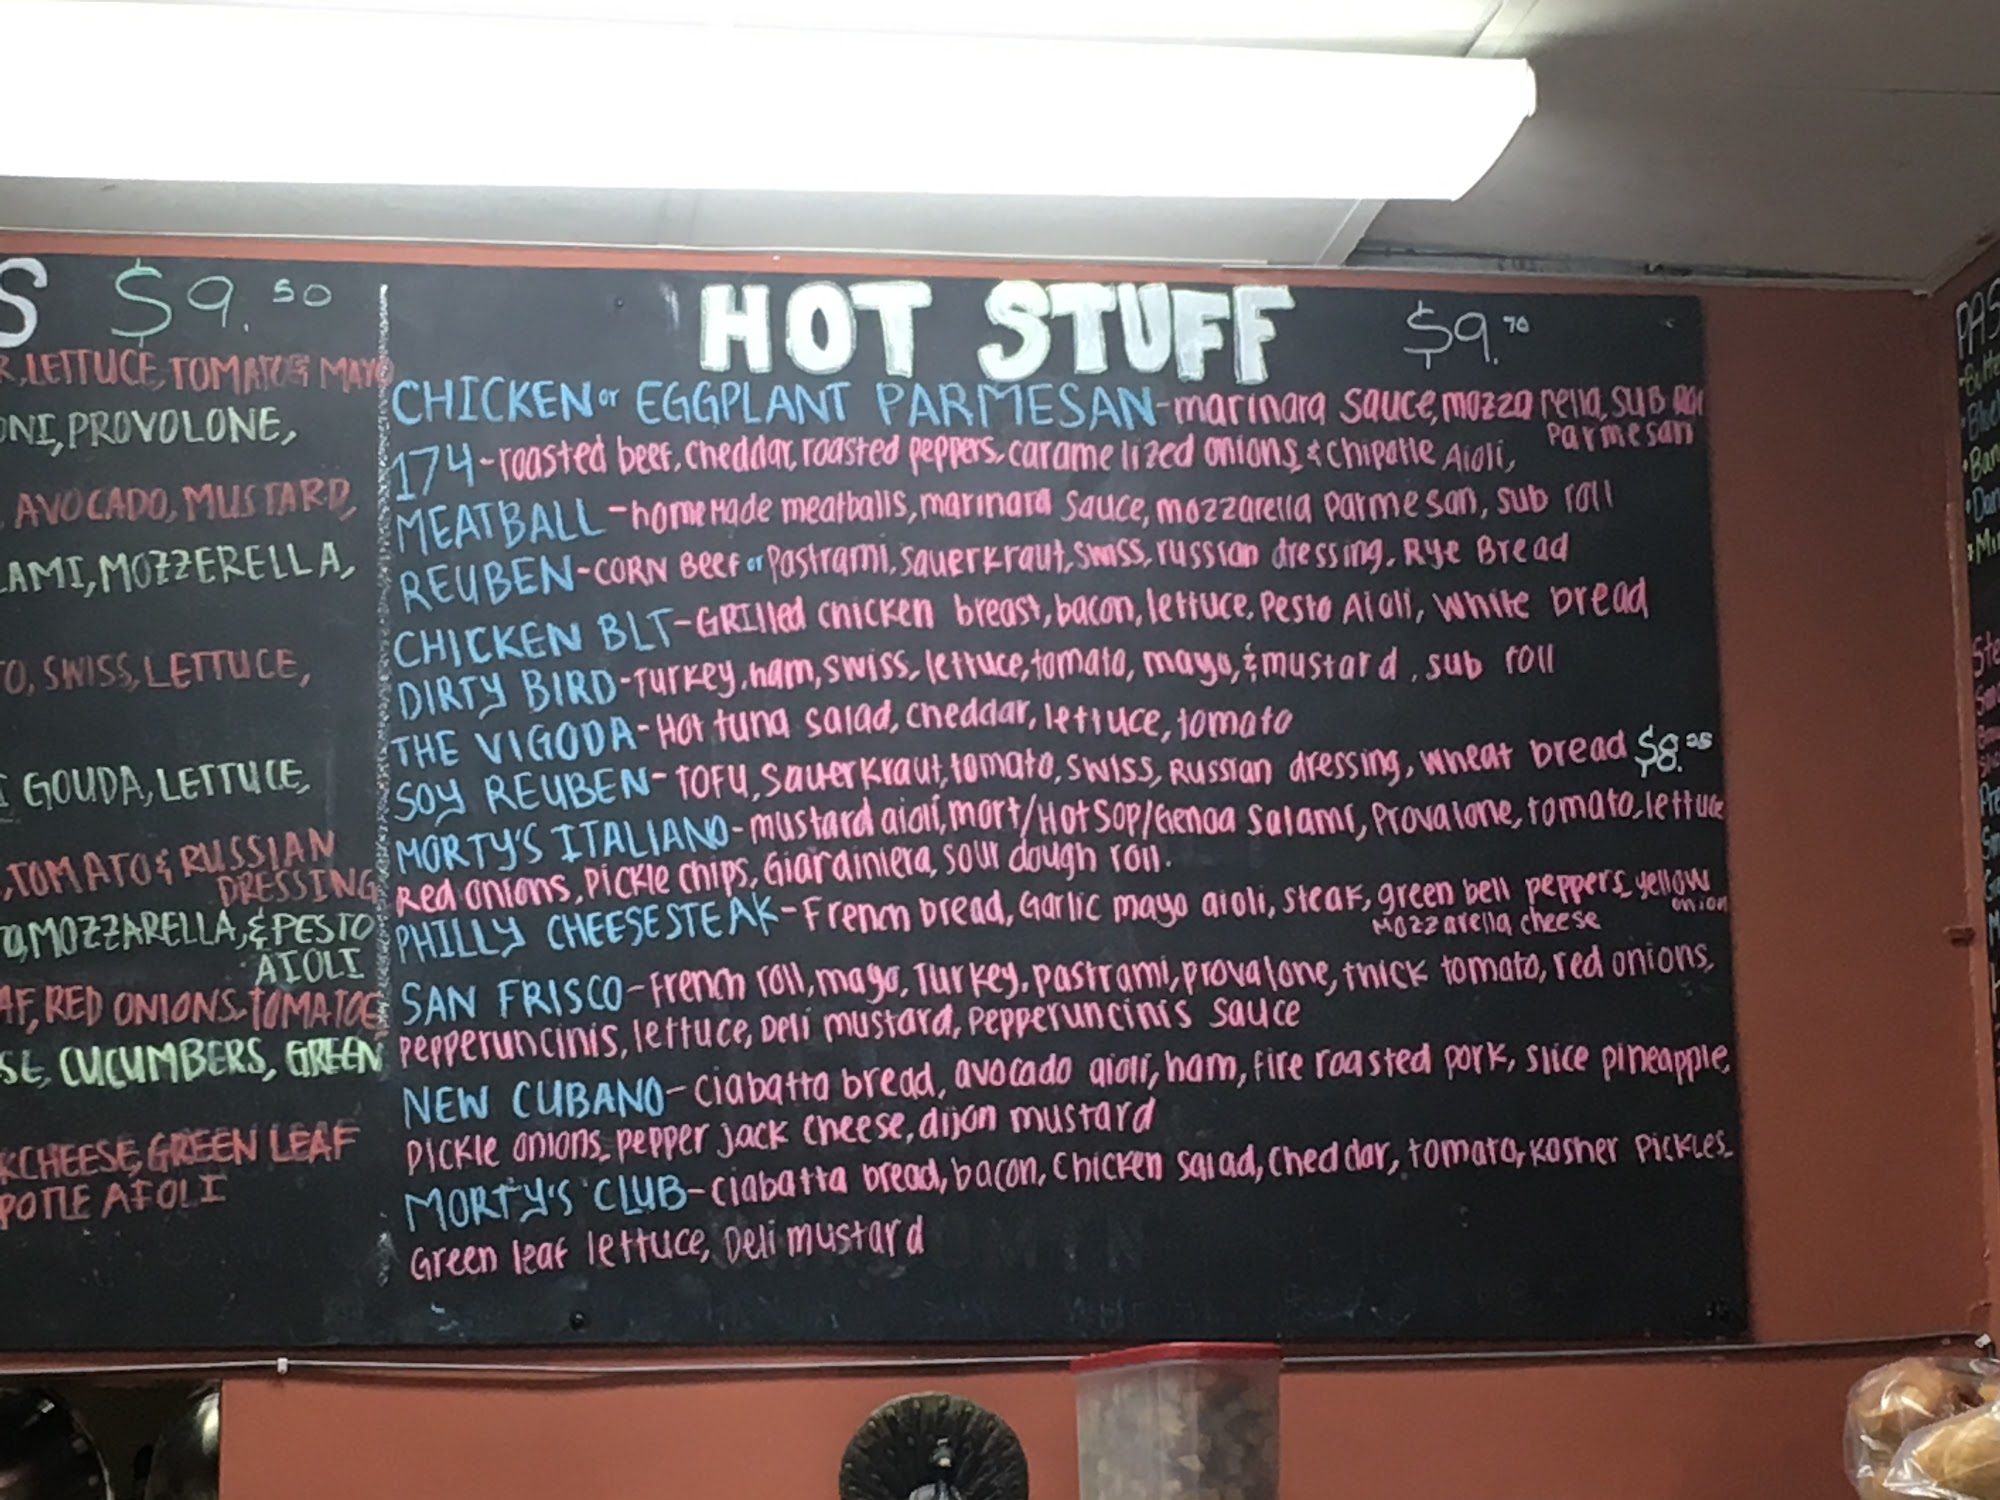 S $9.50
R, LETTUCE, TOMATO & MAYO
ONI, PROVOLONE,
AVOCADO, MUSTARD,
LAMI, MOZZERELLA,
TO, SWISS, LETTUCE,
GOUDA, LETTUCE,
, TOMATO & RUSSIAN
DRESSING
O, MOZZARELLA, & PESTO
AIOLI
AF, RED ONIONS, TOMATOE
SE, CUCUMBERS, GREEN
KCHEESE, GREEN LEAF
POTLE AIOLI
HOT STUFF $9.70
CHICKEN or EGGPLANT PARMESAN-marinara sauce, mozza rella, sub
Parmesan
174-roasted beef, cheddar, roasted peppers, caramelized onions, & chipotle Aioli,
MEATBALL-homemade meatballs, marinara sauce, mozzarella Parmesan, sub roll
REUBEN-CORN Beef or Pastrami, sauerkraut, swiss, russian dressing, Rye Bread
CHICKEN BLT-GRilled chicken breast, bacon, lettuce, Pesto Aioli, White bread
DIRTY BIRD-Turkey, ham, swiss, lettuce, tomato, mayo, & mustard, sub roll
THE VIGODA-Hot tuna salad, cheddar, lettuce, tomato
SOY REUBEN-TOFU, Sauerkraut, tomato, swiss, Russian dressing, wheat bread $8.25
MORTY'S ITALIANO-mustard aioli, mort/Hot sop/Genoa Salami, Provalone, tomato, lettuce
Red onions, Pickle chips, Giardiniera, sour dough roll.
PHILLY CHEESESTEAK-French bread, Garlic mayo aioli, steak, green bell peppers, yellow
onion
Mozzarella cheese
SAN FRISCO-French roll, mayo, Turkey, pastrami, provalone, thick tomato, red onions,
pepperuncinis, lettuce, Deli mustard, Pepperuncinis sauce
NEW CUBANO-ciabatta bread, avocado aioli, ham, fire roasted pork, slice pineapple,
Pickle onions, pepper jack cheese, dijon mustard
MORTY'S CLUB-ciabatta bread, bacon, Chicken salad, Cheddar, tomato, kosher Pickles,
Green leaf lettuce, Deli mustard
PAS